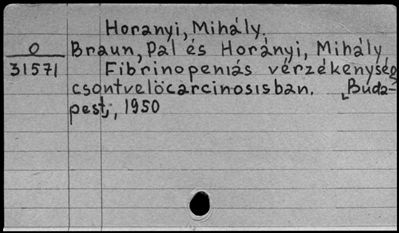 Horanyi, Mihály.
O Braun, Pál és Horányi, Mihály
31571 Fibrinopeniás vérzékenység
csontvelöcarcinosisban. [Buda-
pest], 1950